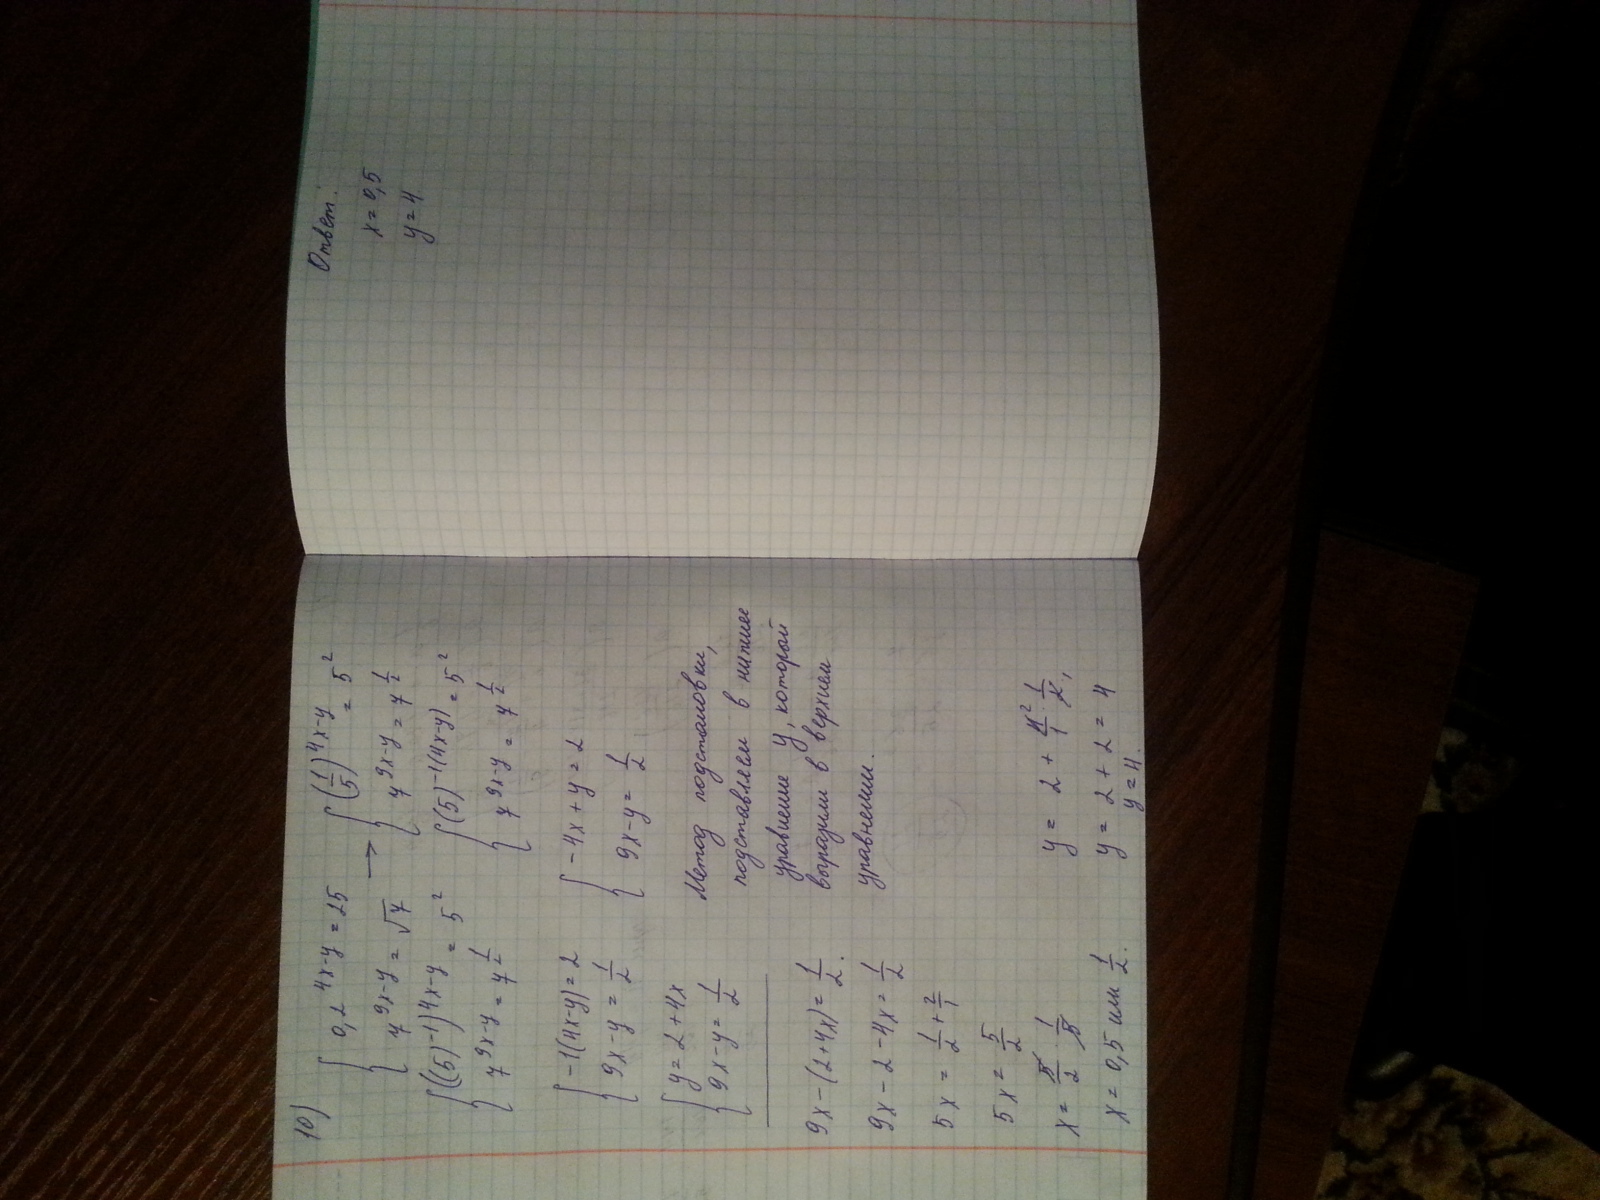 10) { 0,2^(4x-y) = 25
{ 7^(9x-y) = √7 → { (1/5)^(4x-y) = 5^2
{ 7^(9x-y) = 7^(1/2)
{ ((5)^-1)^(4x-y) = 5^2
{ 7^(9x-y) = 7^(1/2)
{ (5)^(-1(4x-y)) = 5^2
{ 7^(9x-y) = 7^(1/2)
{ -1(4x-y) = 2
{ 9x-y = 1/2
{ -4x+y = 2
{ 9x-y = 1/2
{ y = 2+4x
{ 9x-y = 1/2
Метод подстановки,
подставляем в нижнее
уравнение y, который
выразили в верхнем
уравнении.
9x-(2+4x) = 1/2.
9x-2-4x = 1/2
5x = 1/2 + 2/1
5x = 5/2
x = 5/2 · 1/5
x = 0,5 или 1/2.
y = 2 + 4^2/1 · 1/2,
y = 2+2 = 4
y = 4.
Ответ:
x = 0,5
y = 4